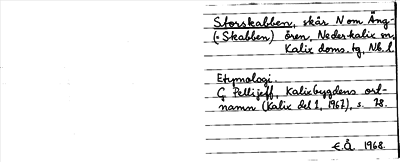 Storskabben, skär N om Äng-
(: Skabben) ören, Nederkalix sn,
Kalix doms. tg, Nb. l.
Etymologi.
G Pellijeff, Kalixbygdens ort-
namn (Kalix del 1, 1967), s. 28.
E.Å. 1968.